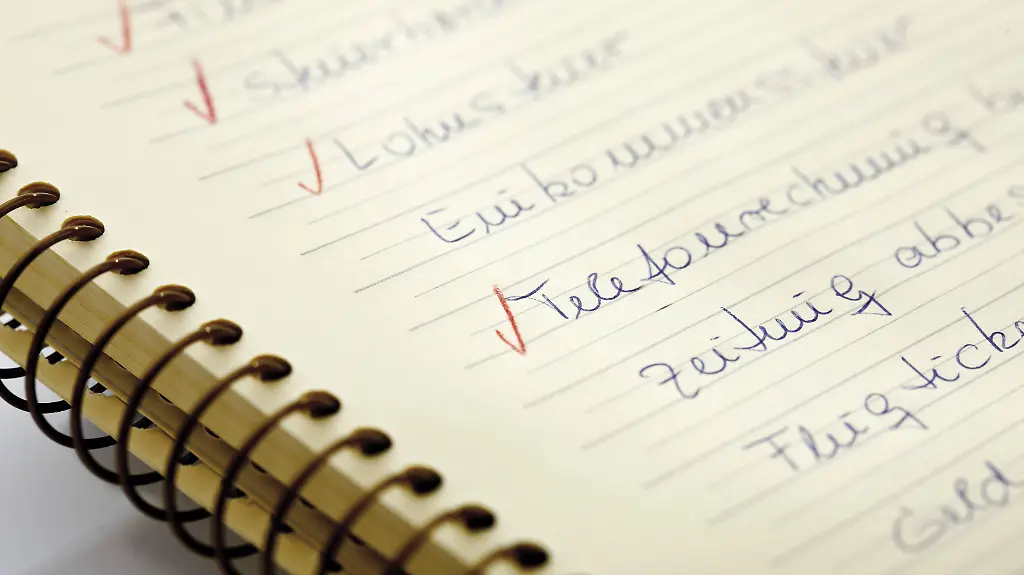 Lohnsteuer
Einkommenssteuer
Telefonrechnung b
Zeitung abbes
Flugticke
Geld